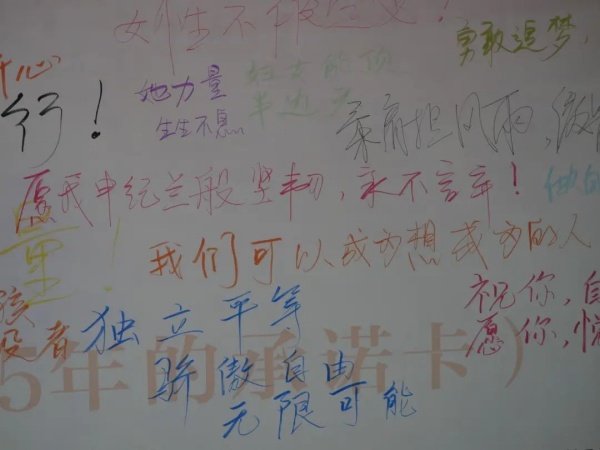 女性不
勇敢追梦,
开心
行!
她力量
生生不息
妇女能顶
半边天
柔肩担风雨,
愿我申纪兰般坚韧,永不言弃!
量!
我们可以成为想成为的人
祝你,自
愿你,悦
独立平等
骄傲自由
无限可能
5年的承诺卡)